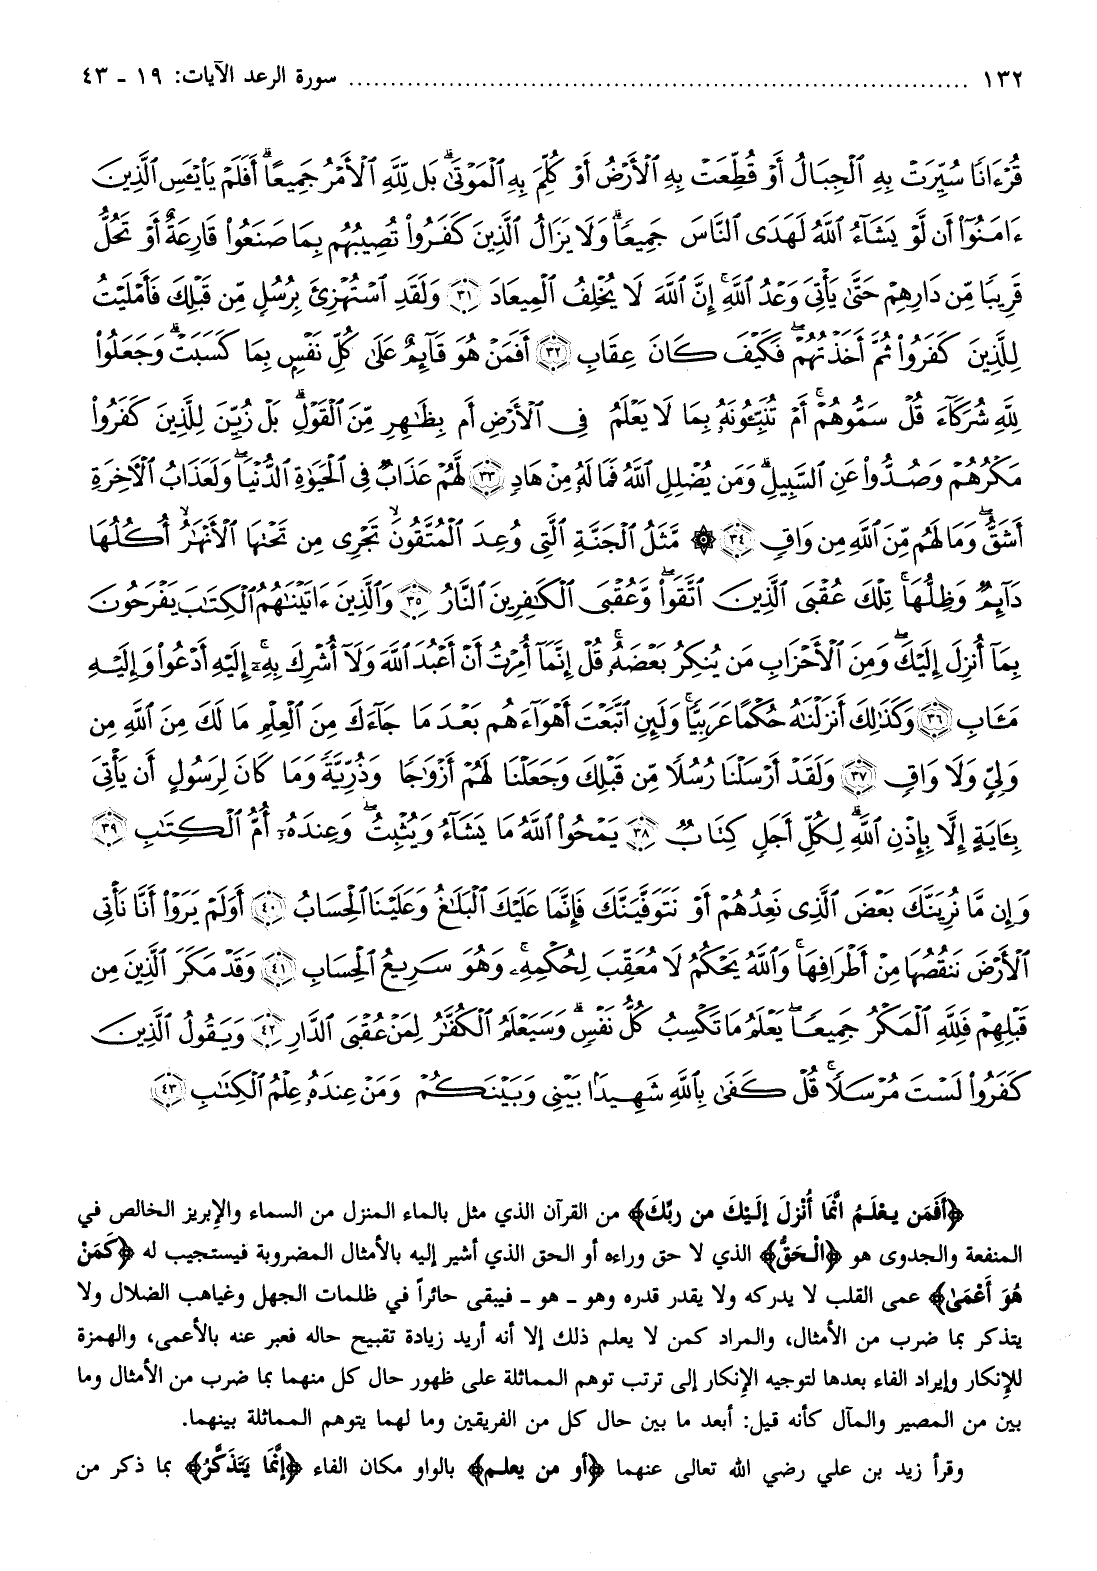 ١٣٢ ........ سورة الرعد الآيات: ١٩ - ٤٣
قُرْءَانًا سُيِّرَتْ بِهِ ٱلْجِبَالُ أَوْ قُطِّعَتْ بِهِ ٱلْأَرْضُ أَوْ كُلِّمَ بِهِ ٱلْمَوْتَىٰ ۗ بَل لِّلَّهِ ٱلْأَمْرُ جَمِيعًا ۗ أَفَلَمْ يَا۟يْـَٔسِ ٱلَّذِينَ
ءَامَنُوٓا۟ أَن لَّوْ يَشَآءُ ٱللَّهُ لَهَدَى ٱلنَّاسَ جَمِيعًا ۗ وَلَا يَزَالُ ٱلَّذِينَ كَفَرُوا۟ تُصِيبُهُم بِمَا صَنَعُوا۟ قَارِعَةٌ أَوْ تَحُلُّ
قَرِيبًا مِّن دَارِهِمْ حَتَّىٰ يَأْتِىَ وَعْدُ ٱللَّهِ ۚ إِنَّ ٱللَّهَ لَا يُخْلِفُ ٱلْمِيعَادَ ٣١ وَلَقَدِ ٱسْتُهْزِئَ بِرُسُلٍ مِّن قَبْلِكَ فَأَمْلَيْتُ
لِلَّذِينَ كَفَرُوا۟ ثُمَّ أَخَذْتُهُمْ ۖ فَكَيْفَ كَانَ عِقَابِ ٣٢ أَفَمَنْ هُوَ قَآئِمٌ عَلَىٰ كُلِّ نَفْسٍ بِمَا كَسَبَتْ ۗ وَجَعَلُوا۟
لِلَّهِ شُرَكَآءَ قُلْ سَمُّوهُمْ ۚ أَمْ تُنَبِّـُٔونَهُۥ بِمَا لَا يَعْلَمُ فِى ٱلْأَرْضِ أَم بِظَـٰهِرٍ مِّنَ ٱلْقَوْلِ ۗ بَلْ زُيِّنَ لِلَّذِينَ كَفَرُوا۟
مَكْرُهُمْ وَصُدُّوا۟ عَنِ ٱلسَّبِيلِ ۗ وَمَن يُضْلِلِ ٱللَّهُ فَمَا لَهُۥ مِنْ هَادٍ ٣٣ لَّهُمْ عَذَابٌ فِى ٱلْحَيَوٰةِ ٱلدُّنْيَا ۖ وَلَعَذَابُ ٱلْـَٔاخِرَةِ
أَشَقُّ ۖ وَمَا لَهُم مِّنَ ٱللَّهِ مِن وَاقٍ ٣٤ ۞ مَّثَلُ ٱلْجَنَّةِ ٱلَّتِى وُعِدَ ٱلْمُتَّقُونَ ۙ تَجْرِى مِن تَحْتِهَا ٱلْأَنْهَـٰرُ ۙ أُكُلُهَا
دَآئِمٌ وَظِلُّهَا ۚ تِلْكَ عُقْبَى ٱلَّذِينَ ٱتَّقَوا۟ ۖ وَّعُقْبَى ٱلْكَـٰفِرِينَ ٱلنَّارُ ٣٥ وَٱلَّذِينَ ءَاتَيْنَـٰهُمُ ٱلْكِتَـٰبَ يَفْرَحُونَ
بِمَآ أُنزِلَ إِلَيْكَ ۖ وَمِنَ ٱلْأَحْزَابِ مَن يُنكِرُ بَعْضَهُۥ ۚ قُلْ إِنَّمَآ أُمِرْتُ أَنْ أَعْبُدَ ٱللَّهَ وَلَآ أُشْرِكَ بِهِۦٓ ۚ إِلَيْهِ أَدْعُوا۟ وَإِلَيْهِ
مَـَٔابِ ٣٦ وَكَذَٰلِكَ أَنزَلْنَـٰهُ حُكْمًا عَرَبِيًّا ۚ وَلَئِنِ ٱتَّبَعْتَ أَهْوَآءَهُم بَعْدَ مَا جَآءَكَ مِنَ ٱلْعِلْمِ مَا لَكَ مِنَ ٱللَّهِ مِن
وَلِىٍّ وَلَا وَاقٍ ٣٧ وَلَقَدْ أَرْسَلْنَا رُسُلًا مِّن قَبْلِكَ وَجَعَلْنَا لَهُمْ أَزْوَٰجًا وَذُرِّيَّةً ۚ وَمَا كَانَ لِرَسُولٍ أَن يَأْتِىَ
بِـَٔايَةٍ إِلَّا بِإِذْنِ ٱللَّهِ ۗ لِكُلِّ أَجَلٍ كِتَابٌ ٣٨ يَمْحُوا۟ ٱللَّهُ مَا يَشَآءُ وَيُثْبِتُ ۖ وَعِندَهُۥٓ أُمُّ ٱلْكِتَـٰبِ ٣٩
وَإِن مَّا نُرِيَنَّكَ بَعْضَ ٱلَّذِى نَعِدُهُمْ أَوْ نَتَوَفَّيَنَّكَ فَإِنَّمَا عَلَيْكَ ٱلْبَلَـٰغُ وَعَلَيْنَا ٱلْحِسَابُ ٤٠ أَوَلَمْ يَرَوْا۟ أَنَّا نَأْتِى
ٱلْأَرْضَ نَنقُصُهَا مِنْ أَطْرَافِهَا ۚ وَٱللَّهُ يَحْكُمُ لَا مُعَقِّبَ لِحُكْمِهِۦ ۚ وَهُوَ سَرِيعُ ٱلْحِسَابِ ٤١ وَقَدْ مَكَرَ ٱلَّذِينَ مِن
قَبْلِهِمْ فَلِلَّهِ ٱلْمَكْرُ جَمِيعًا ۖ يَعْلَمُ مَا تَكْسِبُ كُلُّ نَفْسٍ ۗ وَسَيَعْلَمُ ٱلْكُفَّـٰرُ لِمَنْ عُقْبَى ٱلدَّارِ ٤٢ وَيَقُولُ ٱلَّذِينَ
كَفَرُوا۟ لَسْتَ مُرْسَلًا ۚ قُلْ كَفَىٰ بِٱللَّهِ شَهِيدًۢا بَيْنِى وَبَيْنَكُمْ وَمَنْ عِندَهُۥ عِلْمُ ٱلْكِتَـٰبِ ٤٣
﴿أَفَمَن يَعْلَمُ أَنَّمَا أُنْزِلَ إِلَيْكَ من ربِّكَ﴾ من القرآن الذي مثل بالماء المنزل من السماء والإبريز الخالص في
المنفعة والجدوى هو ﴿الْحَقُّ﴾ الذي لا حق وراءه أو الحق الذي أشير إليه بالأمثال المضروبة فيستجيب له ﴿كَمَنْ
هُوَ أَعْمَىٰ﴾ عمى القلب لا يدركه ولا يقدر قدره وهو ـ هو ـ فيبقى حائراً في ظلمات الجهل وغياهب الضلال ولا
يتذكر بما ضرب من الأمثال، والمراد كمن لا يعلم ذلك إلا أنه أريد زيادة تقبيح حاله فعبر عنه بالأعمى، والهمزة
للإنكار وإيراد الفاء بعدها لتوجيه الإنكار إلى ترتب توهم المماثلة على ظهور حال كل منهما بما ضرب من الأمثال وما
بين من المصير والمآل كأنه قيل: أبعد ما بين حال كل من الفريقين وما لهما يتوهم المماثلة بينهما.
وقرأ زيد بن علي رضي الله تعالى عنهما ﴿أو من يعلم﴾ بالواو مكان الفاء ﴿إِنَّمَا يَتَذَكَّرُ﴾ بما ذكر من